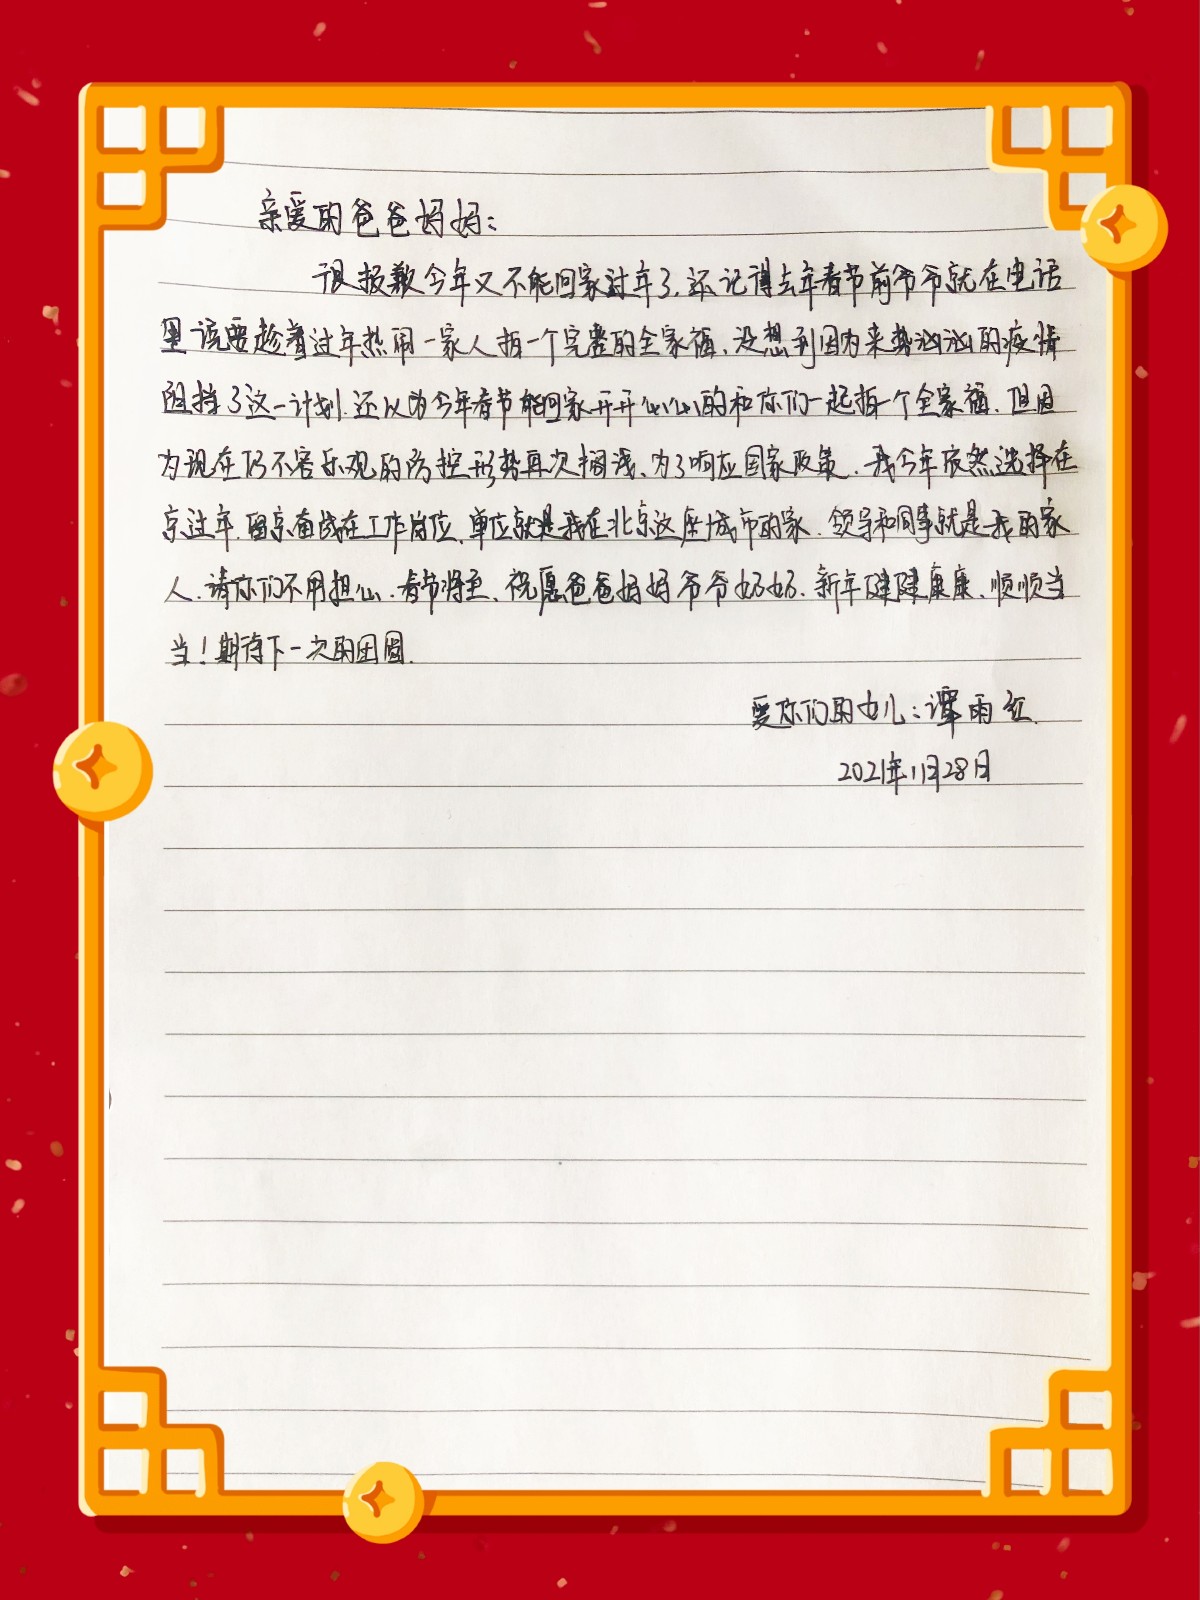 亲爱的爸爸妈妈：
很报歉今年又不能回家过年了，还记得去年春节前爷爷就在电话
里说要趁着过年热闹一家人拍一个完整的全家福，没想到因为来势汹汹的疫情
阻挡了这一计划，还以为今年春节能回家开开心心的和你们一起拍一个全家福，但因
为现在仍不容乐观的防控形势再次搁浅，为了响应国家政策，我今年依然选择在
京过年，留京奋战在工作岗位，单位就是我在北京这座城市的家，领导和同事就是我的家
人，请你们不用担心，春节将至，祝愿爸爸妈妈爷爷奶奶，新年健健康康，顺顺当
当！期待下一次的团圆.
爱你们的女儿：谭雨红
2021年1月28日